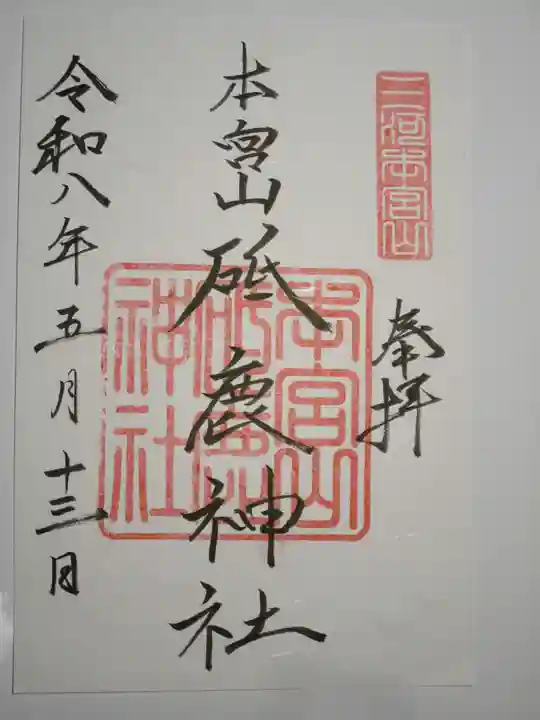 三河本宮山
奉拝
本宮山砥鹿神社
本宮山
砥鹿
神社
令和八年五月十三日